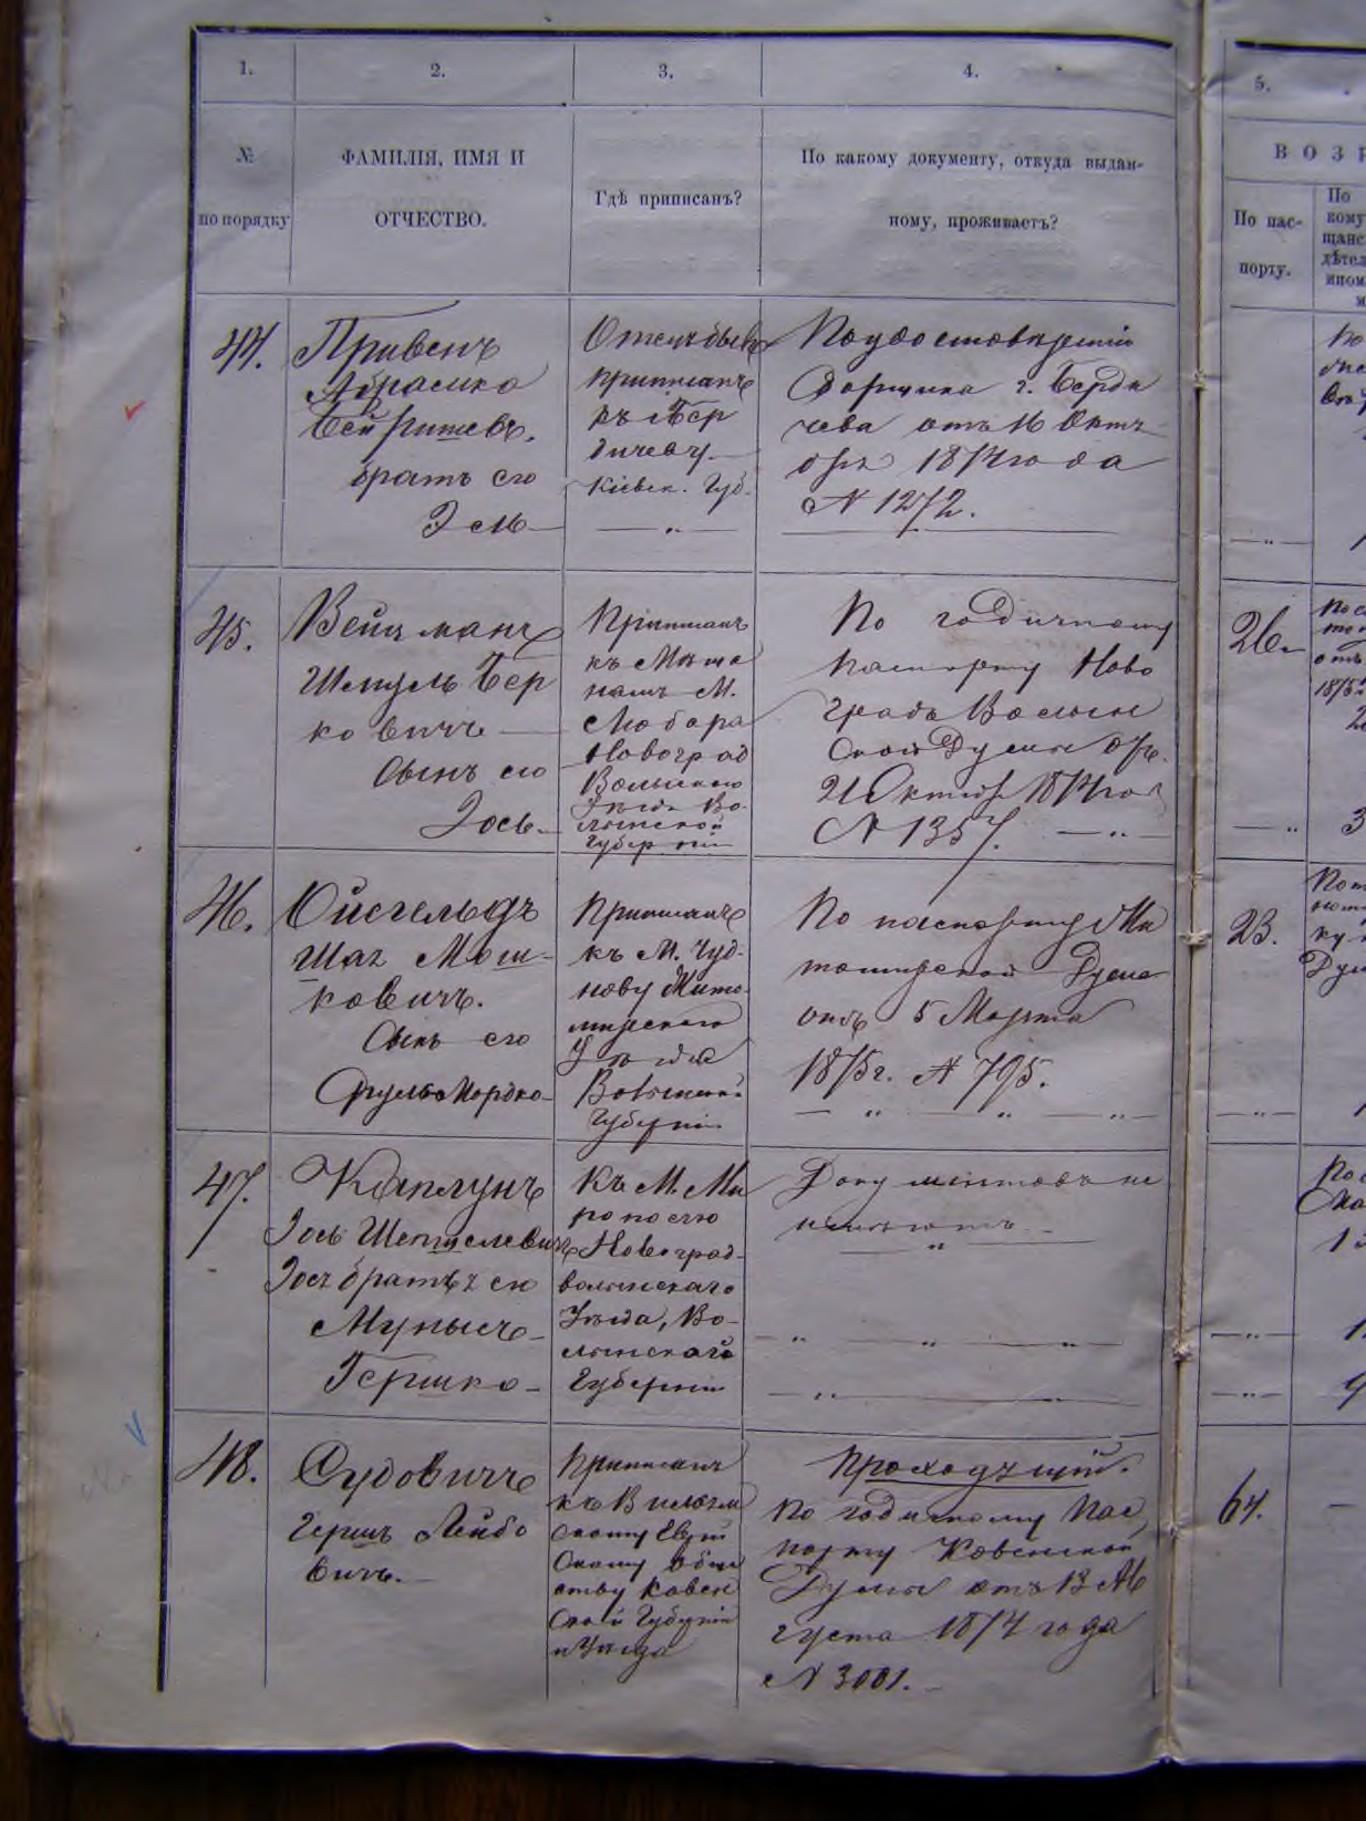 1.
2.
3.
4.
5.
№
по порядку
ФАМИЛІЯ, ИМЯ И
ОТЧЕСТВО.
Гдѣ приписанъ?
По какому документу, откуда выдан-
ному, проживаетъ?
ВОЗР
По пас-
порту.
По
кому
щанс
дѣтел
ином
44.
Привенъ
Абрамко
братъ его
Отецъ былъ
приписанъ
къ г. Бер
дичеву
Кіевск. Губ.
По удостовѣренію
Сборщика г. Берди
чева отъ 16 Октя
бря 1874 года
№ 1272.
45.
Вейцманъ
Шмуль Бер
ковичъ
Сынъ его
Іось
Приписанъ
къ Мѣща
намъ М.
Любара
Новоград
Волынского
Уѣзда Во-
лынской
Губерніи
По годичному
паспорту Ново
градъ Волын
ской Думы отъ
21 Октяб 1874 год
№ 1357.
26
3
46.
Ойсгельдъ
Мош-
ковичъ.
Сынъ его
Сруль Мордко
Приписанъ
къ М. Чуд-
нову Жито-
мирского
Уѣзда
Волынск.
Губерніи
По паспорту Жи
томирской Думы
отъ 5 Марта
1875 г. № 795.
23.
47.
Каплунъ
Іось Шмулевичъ
братъ его
Мунысъ
Гершко
Къ М. Ми
рополю
Новоград-
волынскаго
Уѣзда, Во-
лынскаго
Губерніи
Документовъ не
имѣютъ
9
48.
Судовичъ
Гершъ Лейбо
вичъ.
Приписанъ
къ Вильям
скому Еврей
скому Обще
ству Ковен
ской Губерніи
и Уѣзда
Проходящій.
По годичному пас
порту Ковенской
Думы отъ 13 Ав
густа 1874 года
№ 3001.
64.